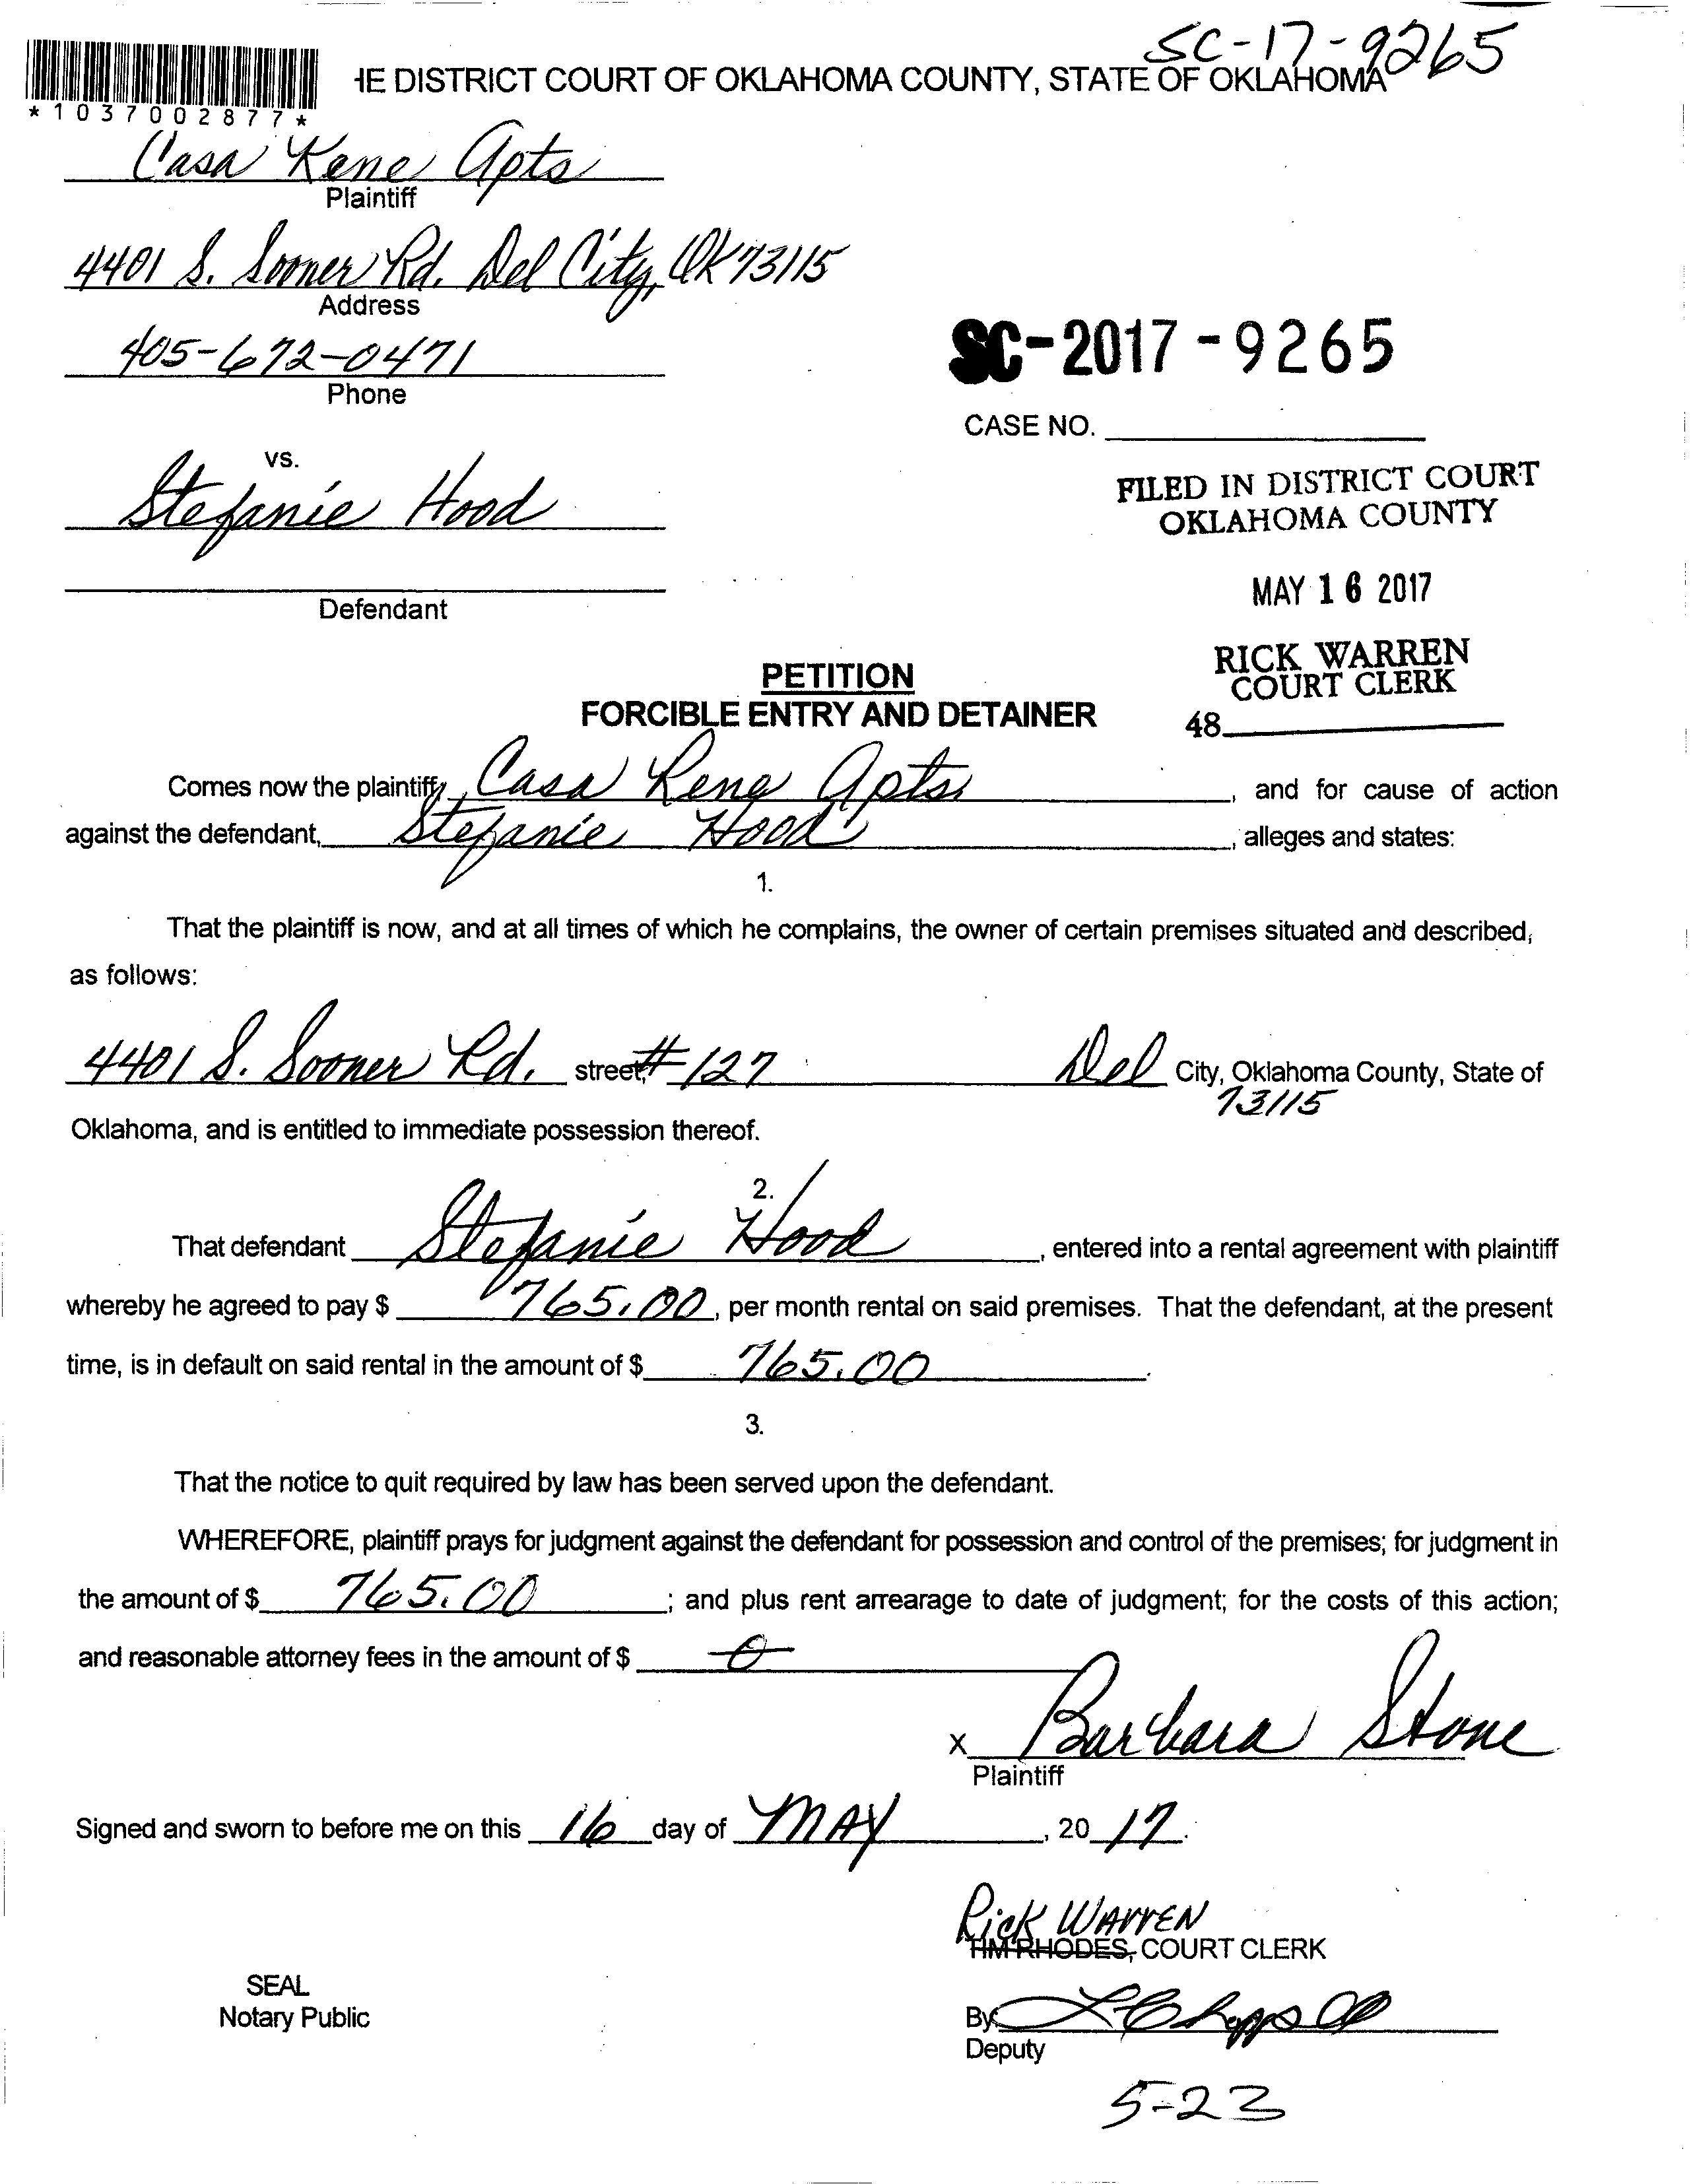 SC-17-9265
IE DISTRICT COURT OF OKLAHOMA COUNTY, STATE OF OKLAHOMA
*1037002877*
Casa Rene Apts
Plaintiff
4401 S. Sooner Rd. Del City, OK 73115
Address
405-672-0471
Phone
SC-2017-9265
CASE NO.
vs.
Stefanie Hood
Defendant
FILED IN DISTRICT COURT
OKLAHOMA COUNTY
MAY 16 2017
RICK WARREN
COURT CLERK
48
PETITION
FORCIBLE ENTRY AND DETAINER
Comes now the plaintiff, Casa Rene Apts, and for cause of action
against the defendant, Stefanie Hood, alleges and states:
1.
That the plaintiff is now, and at all times of which he complains, the owner of certain premises situated and described,
as follows:
4401 S. Sooner Rd. street, #127 Del City, Oklahoma County, State of
73115
Oklahoma, and is entitled to immediate possession thereof.
2.
That defendant Stefanie Hood, entered into a rental agreement with plaintiff
whereby he agreed to pay $ 765.00, per month rental on said premises. That the defendant, at the present
time, is in default on said rental in the amount of $ 765.00.
3.
That the notice to quit required by law has been served upon the defendant.
WHEREFORE, plaintiff prays for judgment against the defendant for possession and control of the premises; for judgment in
the amount of $ 765.00; and plus rent arrearage to date of judgment; for the costs of this action;
and reasonable attorney fees in the amount of $ 0
x Barbara Stone
Plaintiff
Signed and sworn to before me on this 16 day of MAY, 2017.
Rick Warren
TIM RHODES, COURT CLERK
SEAL
Notary Public
By
Deputy
5-23